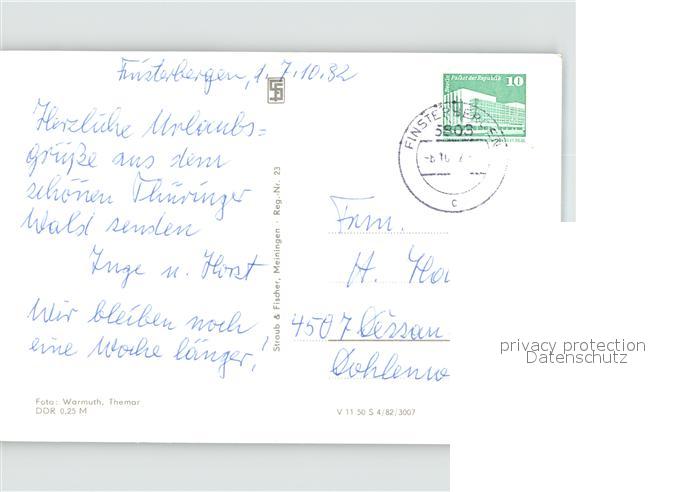 Finsterbergen, 1. 7.10.82
Herzliche Urlaubs=
grüße aus dem
schönen Thüringer
Wald senden
Inge u. Horst
Wir bleiben noch
eine Woche länger!
Foto: Warmuth, Themar
DDR 0,25 M
Straub & Fischer, Meiningen · Reg.-Nr. 23
Palast der Republik 10
FINSTERBERGEN
5803
c
Fam.
H.
4507 Dessau
V 11 50 S 4/82/3007
privacy protection
Datenschutz